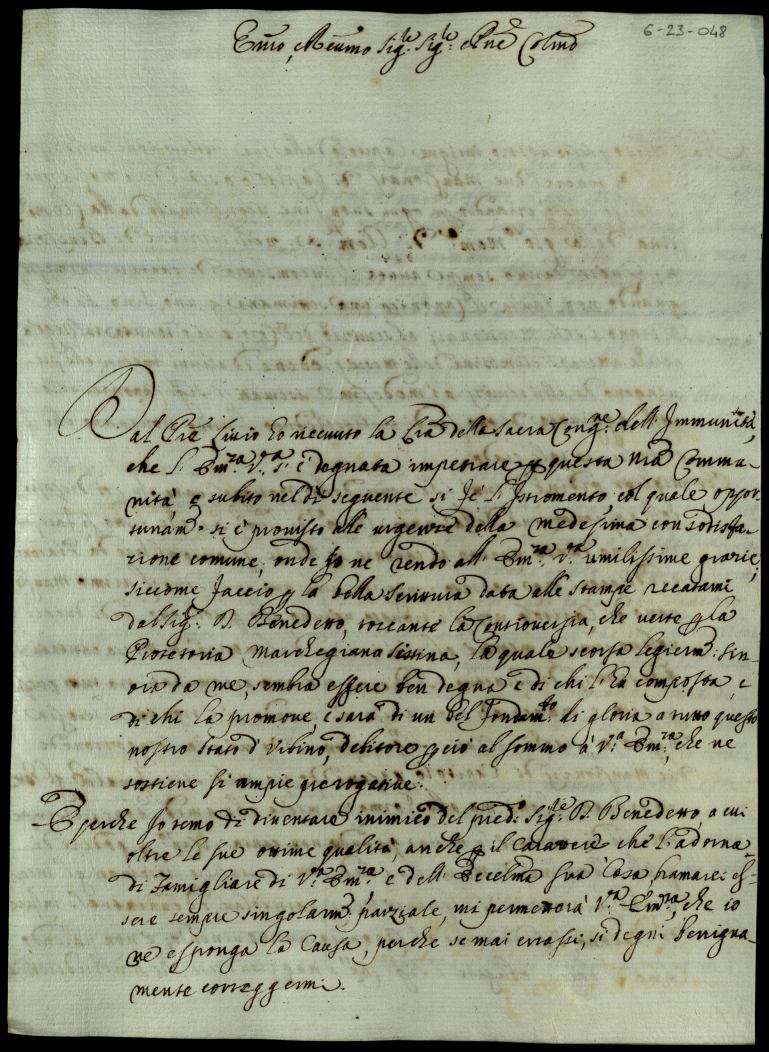 6-23-048
Emo, e Reumo Sig.re Sig.re e Pne Colmo
Dal Pre Livio ho riceuuto la Lra della Sacra Cong.ne dell'Immunità,
che l'Em.za V.a s'è degnata impetrare p questa mia Commu-
nità, e subito nel dì seguente si fé l'Istromento, col quale oppor-
tunam.e si è prouisto alle urgenze della medesima con sodisfa-
zione comune, onde Io ne rendo all'Em.za V.a umilissime grazie;
siccome faccio p la bella Scrittura data alle stampe recatami
dal Sig.r D. Benedetto, toccante la Controversia, che verte p la
Protettoria Marchegiana Sistina, la quale scorsa legierm.e sin-
ora da me, sembra essere ben degna e di chi l'ha composta, e
di chi la promove, e sarà di un bel fondam.to di gloria a tutto questo
nostro Stato d'Urbino, debitore p ciò al sommo à V.a Em.za, che ne
sostiene sì ampie prerogative.
E perche Io temo di diventare inimico del pred.o Sig.re D. Benedetto, a cui
oltre le sue ottime qualità, anche p il Carattere che l'adorna
di Famigliare di V.a Em.za e dell'Eccelma sua Casa bramarei es-
sere sempre singolarm.e parziale, mi permetterà V.a Em.za, che io
ne esponga la Causa, perche se mai errassi, si degni benigna-
mente correggermi.